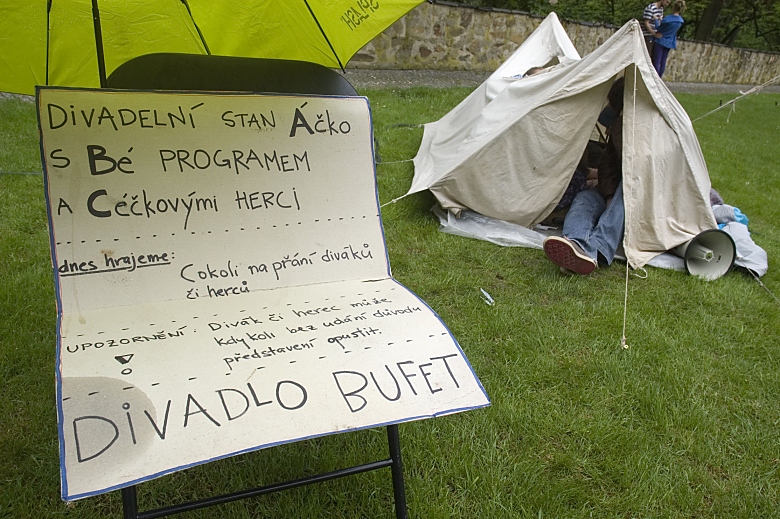 DIVADELNÍ STAN Áčko
S Bé PROGRAMEM
A Céčkovými HERCI
dnes hrajeme: Cokoli na přání diváků
či herců
UPOZORNĚNÍ: Divák či herec může
kdykoli bez udání důvodu
představení opustit.
DIVADLO BUFET